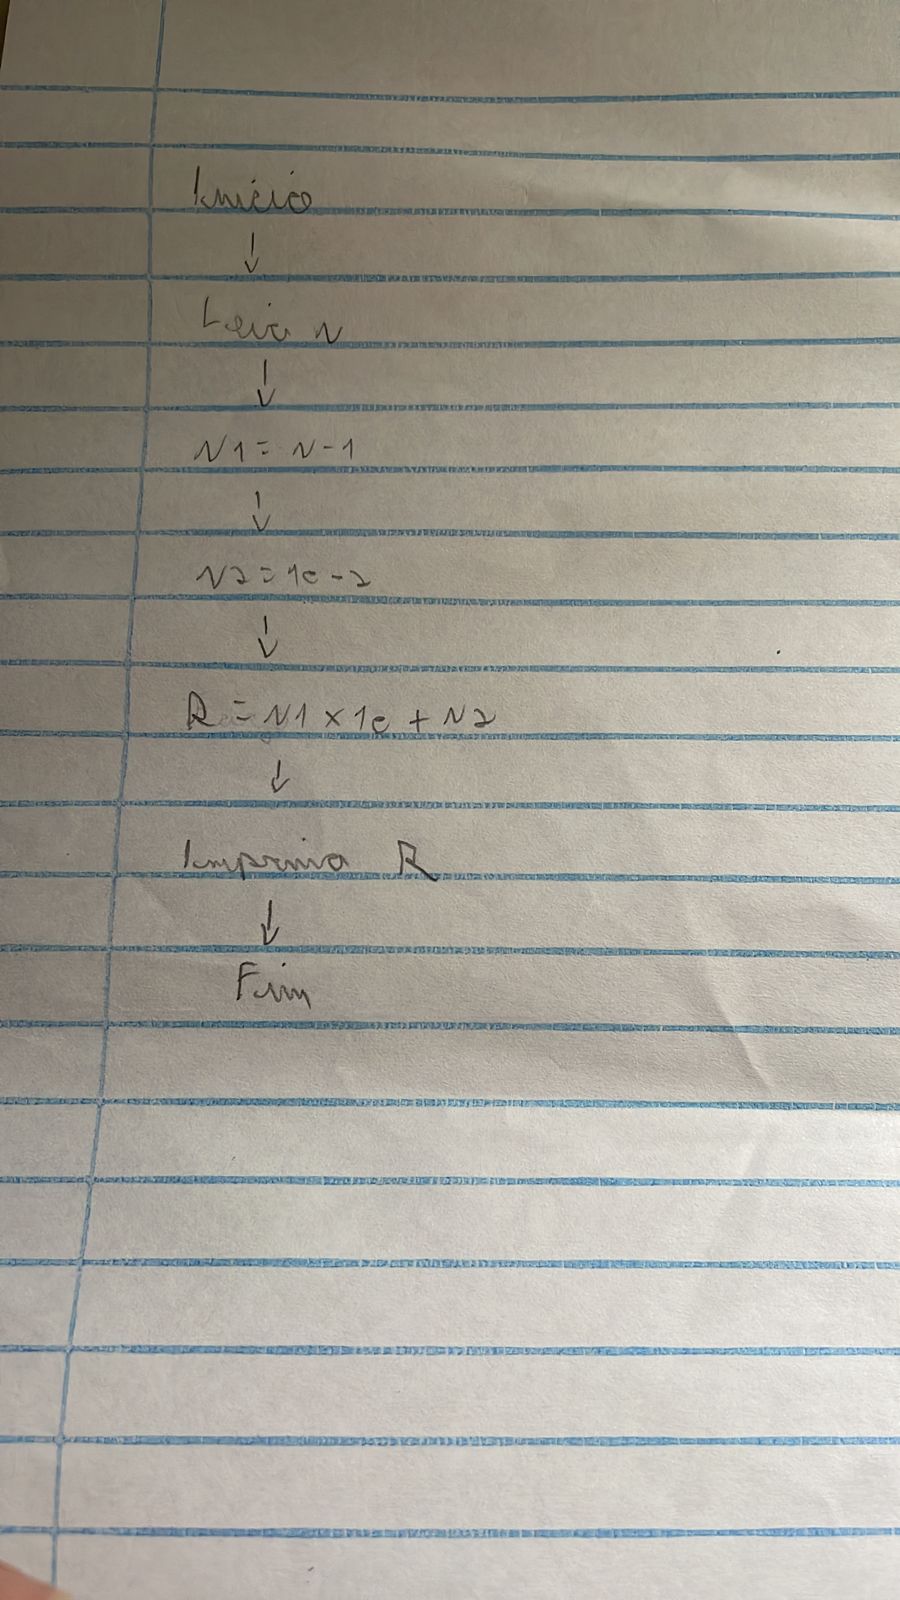 Início
↓
Leia N
↓
N1 = N - 1
↓
N2 = 10 - 2
↓
R = N1 x 10 + N2
↓
Imprima R
↓
Fim